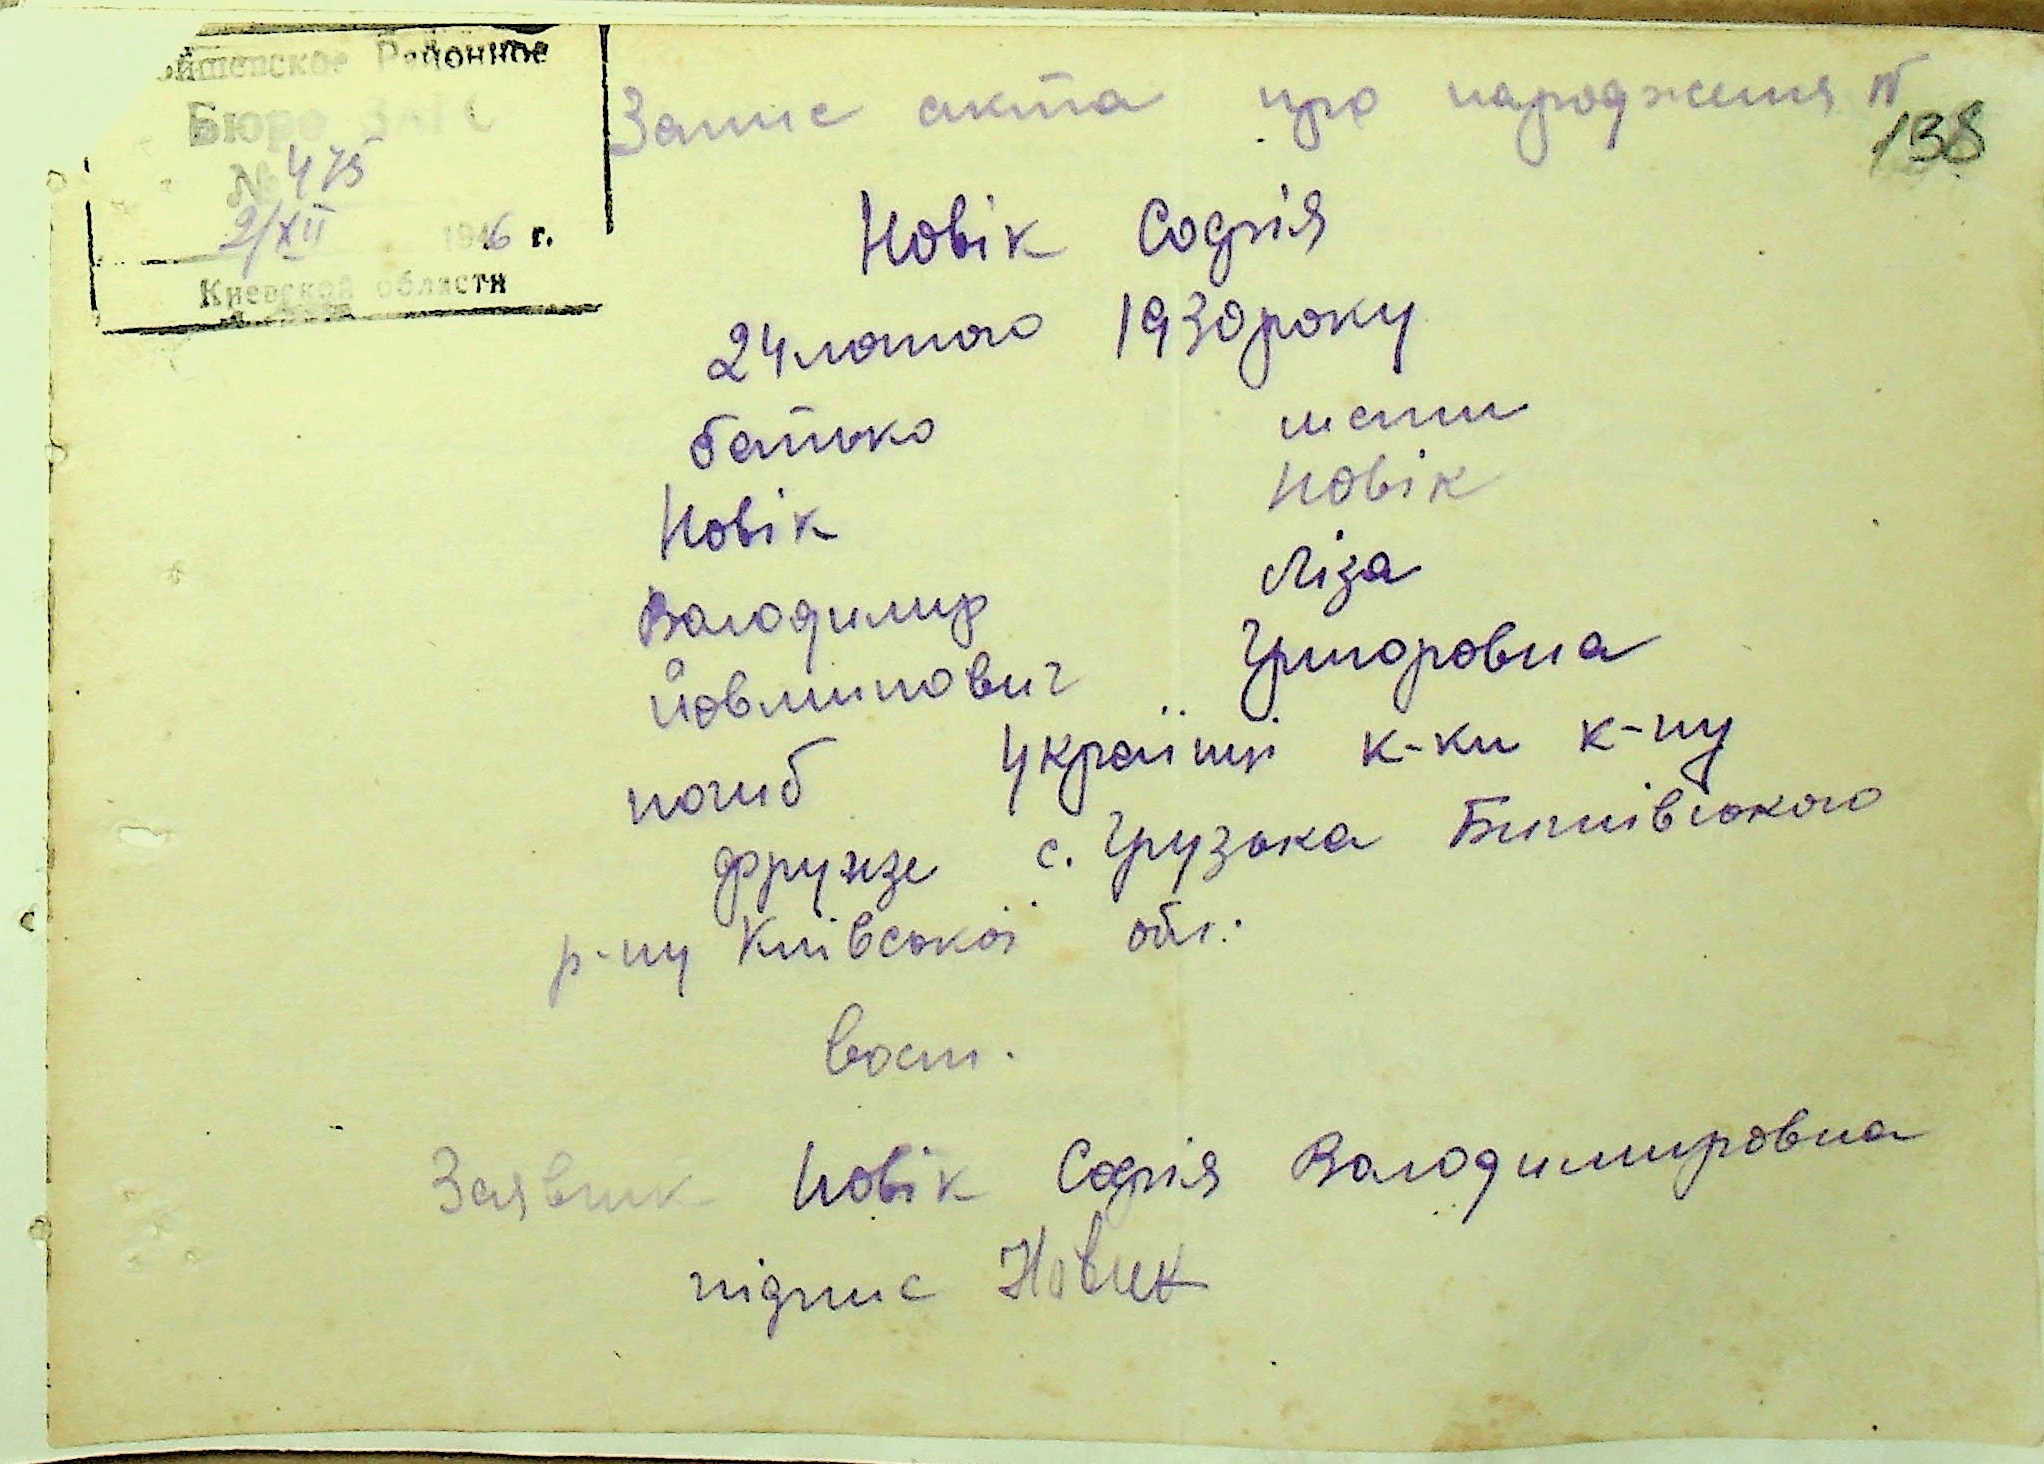 Районное
Бюро ЗАГС
№ 475
2/XII 1946 г.
Киевской области
Запис акта про народження №
138
Новік Софія
24 лютого 1930 року
батько мати
Новік Новік
Володимир Ліза
Григоровна
погиб Українці к-ки к-пу
Фрунзе с. Грузька Бишівського
р-ну Київської обл.
восст.
Заявник Новік Софія Володимировна
підпис Новик